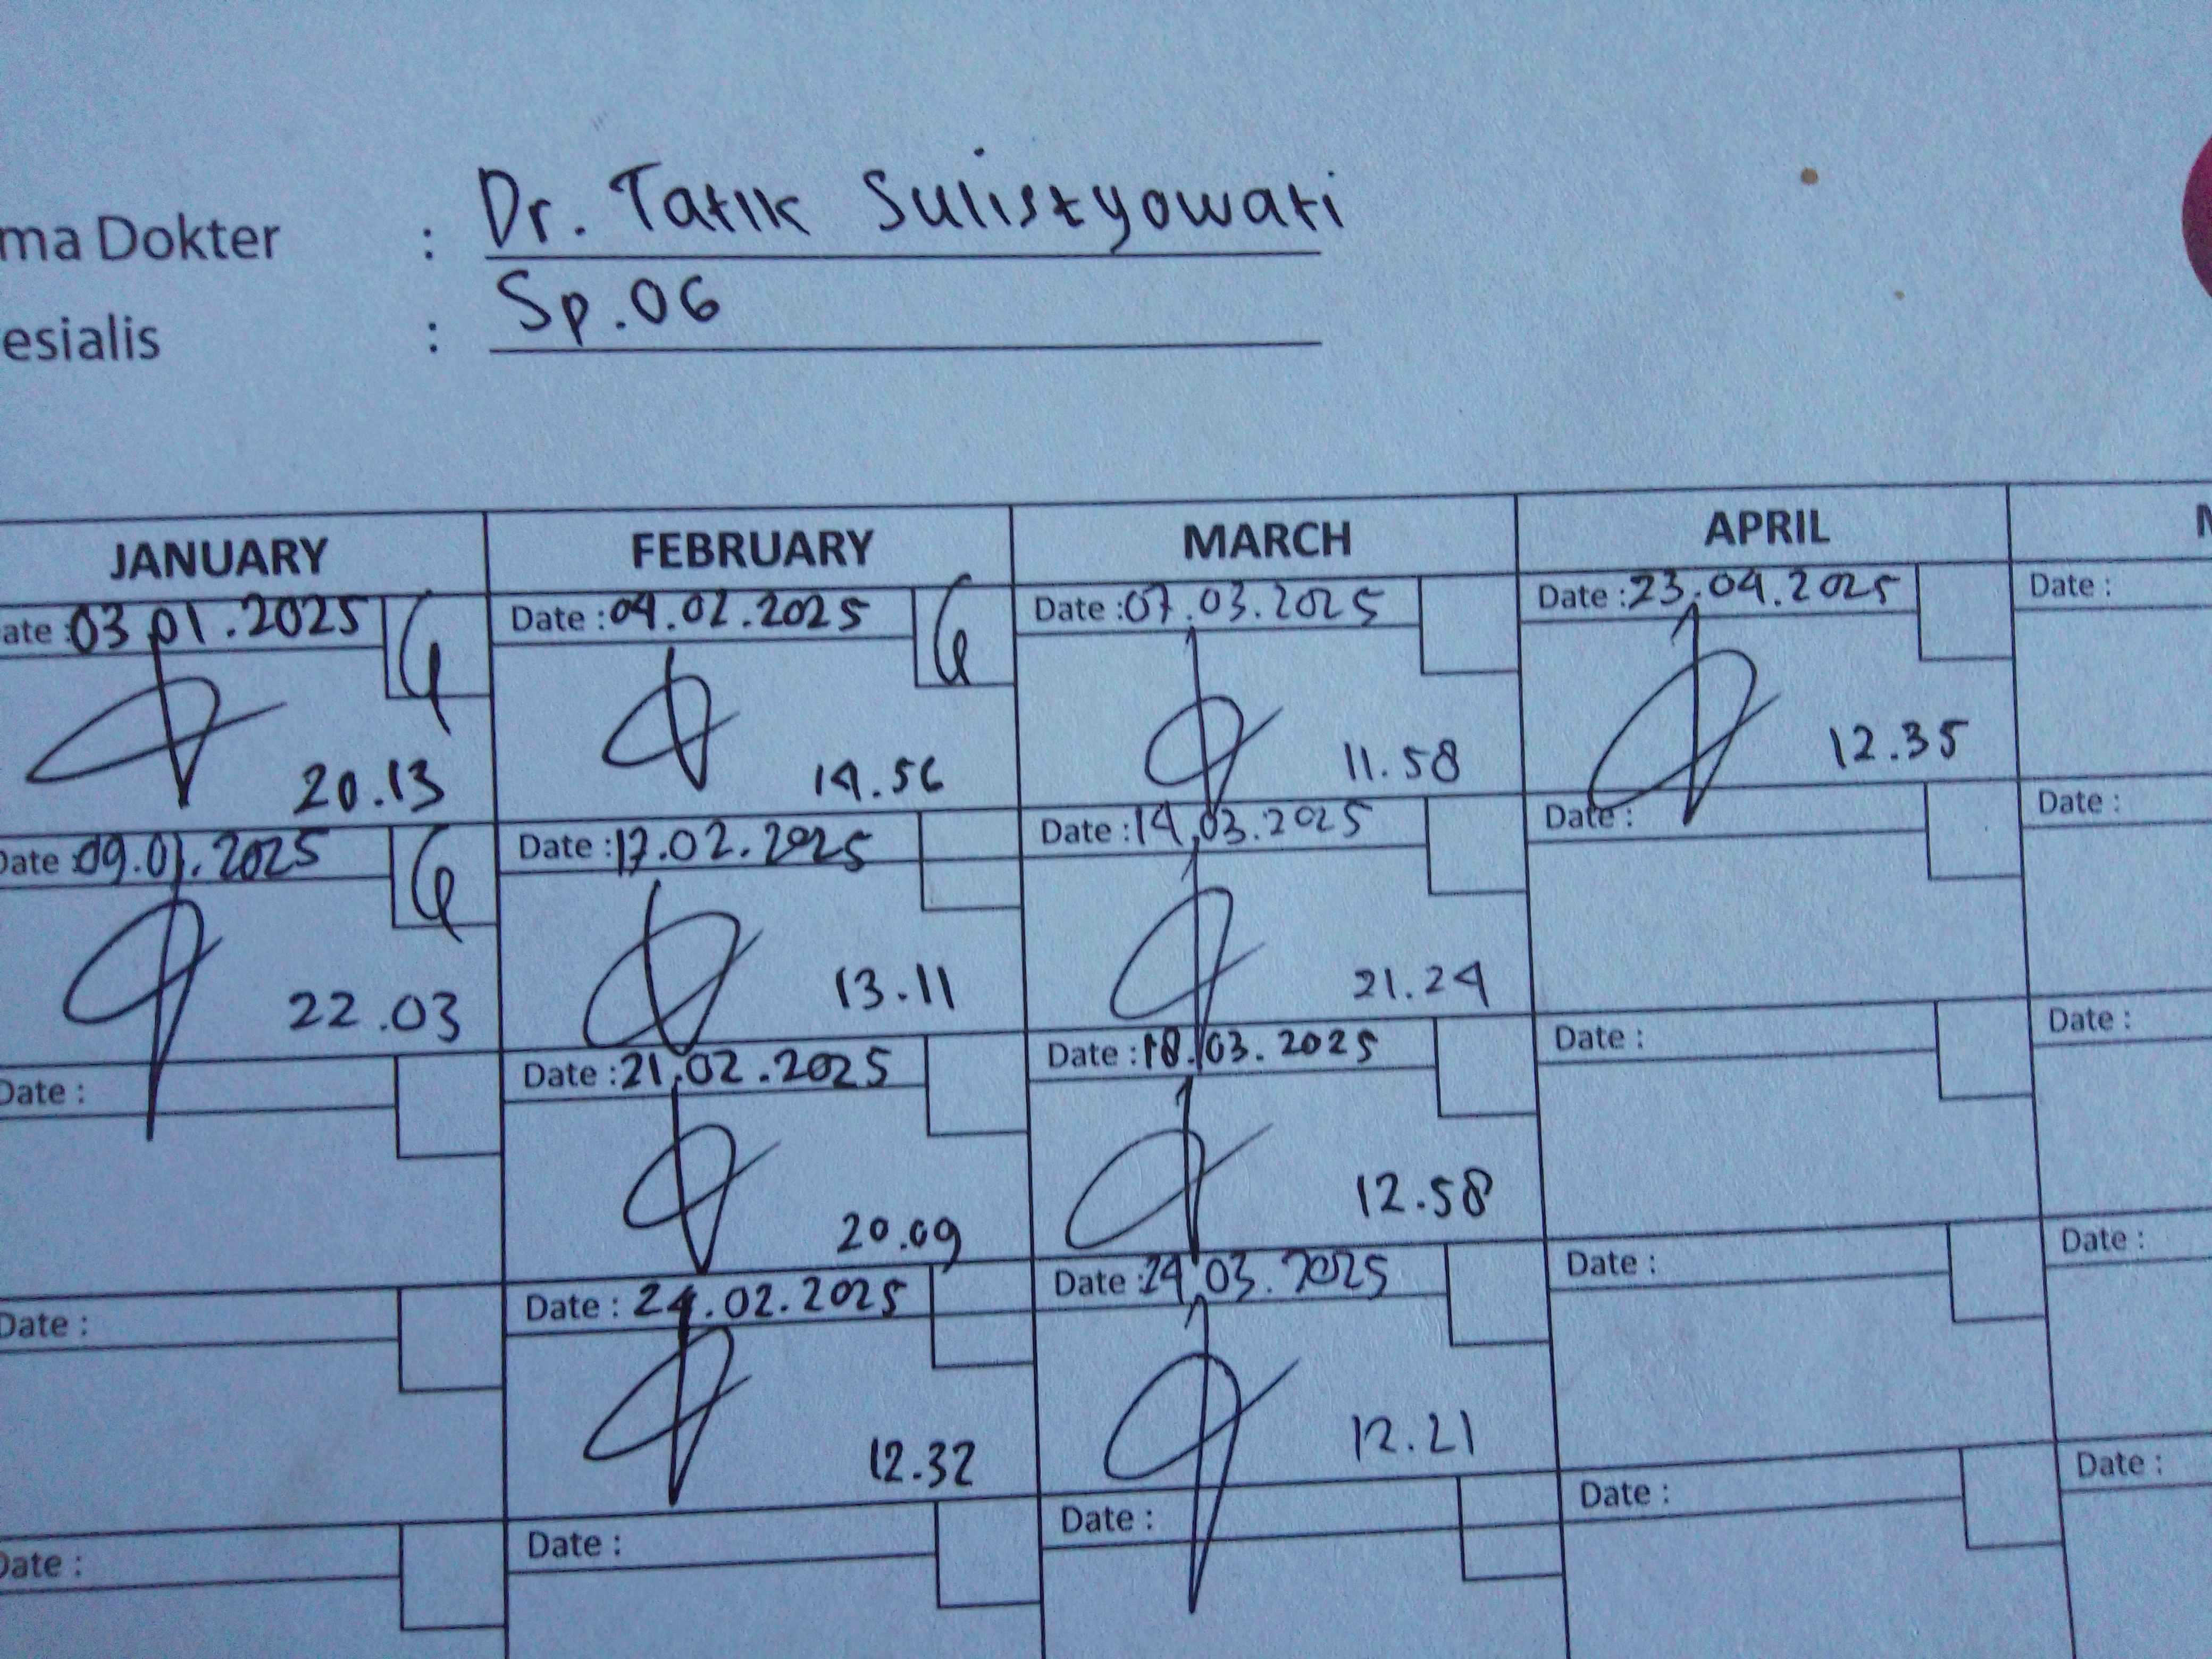 ma Dokter : Dr. Tatik Sulistyowati
esialis : Sp.OG
JANUARY FEBRUARY MARCH APRIL
ate : 03.01.2025 Date : 04.02.2025 Date : 07.03.2025 Date : 23.04.2025 Date :
20.13 14.56 11.58 12.35
Date : 09.01.2025 Date : 17.02.2025 Date : 14.03.2025 Date : Date :
22.03 13.11 21.24
Date : Date : 21.02.2025 Date : 18.03.2025 Date : Date :
20.09 12.58
Date : Date : 24.02.2025 Date : 24.03.2025 Date : Date :
12.32 12.21
Date : Date : Date : Date : Date :